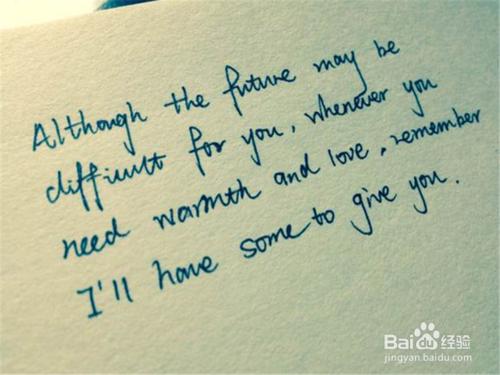 Although the future may be
difficult for you, whenever you
need warmth and love, remember
I'll have some to give you.
Baidu经验
jingyan.baidu.com